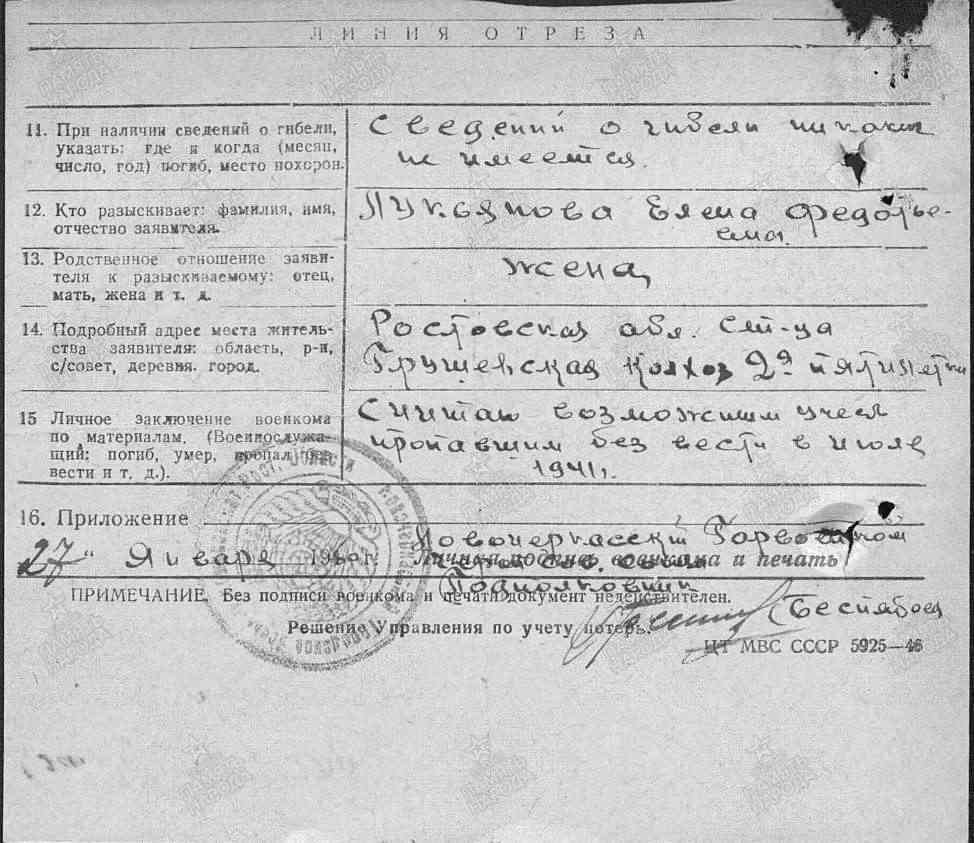 ЛИНИЯ ОТРЕЗА
11. При наличии сведений о гибели,
указать: где и когда (месяц,
число, год) погиб, место похорон.
Сведений о гибели никаких
не имеется.
12. Кто разыскивает: фамилия, имя,
отчество заявителя.
Лукьянова Елена Федорье-
евна.
13. Родственное отношение заяви-
теля к разыскиваемому: отец,
мать, жена и т. д.
жена
14. Подробный адрес места житель-
ства заявителя: область, р-н,
с/совет, деревня. город.
Ростовская обл. ст-ца
Грушевская колхоз 2я пятилетка
15 Личное заключение военкома
по материалам. (Военнослужа-
щий: погиб, умер, пропал без
вести и т. д.).
Считаю возможным
пропавшим без вести в июле
1941г.
16. Приложение
27 " Января 19 г. Личная подпись военкома и печать
Новочеркасский Горвоенком
Подполковник
ПРИМЕЧАНИЕ. Без подписи военкома и печати документ недействителен.
Решение Управления по учету потерь.
ЦТ МВС СССР 5925—46